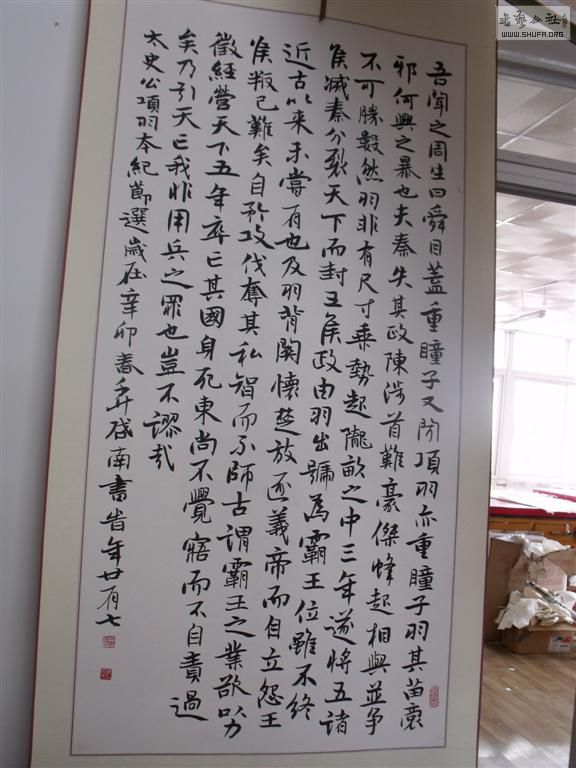 吾聞之周生曰舜目蓋重瞳子又聞項羽亦重瞳子羽其苗裔
邪何興之暴也夫秦失其政陳涉首難豪傑蜂起相與並爭
不可勝數然羽非有尺寸乘勢起隴畝之中三年遂將五諸
侯滅秦分裂天下而封王侯政由羽出號為霸王位雖不終
近古以來未嘗有也及羽背關懷楚放逐義帝而自立怨王
侯叛己難矣自矜攻伐奮其私智而不師古謂霸王之業欲以力
徵經營天下五年卒亡其國身死東尚不覺寤而不自責過
矣乃引天亡我非用兵之罪也豈不謬哉
太史公項羽本紀節選歲在辛卯春月啟南書旹年廿有七
書法公社
WWW.SHUFA.ORG